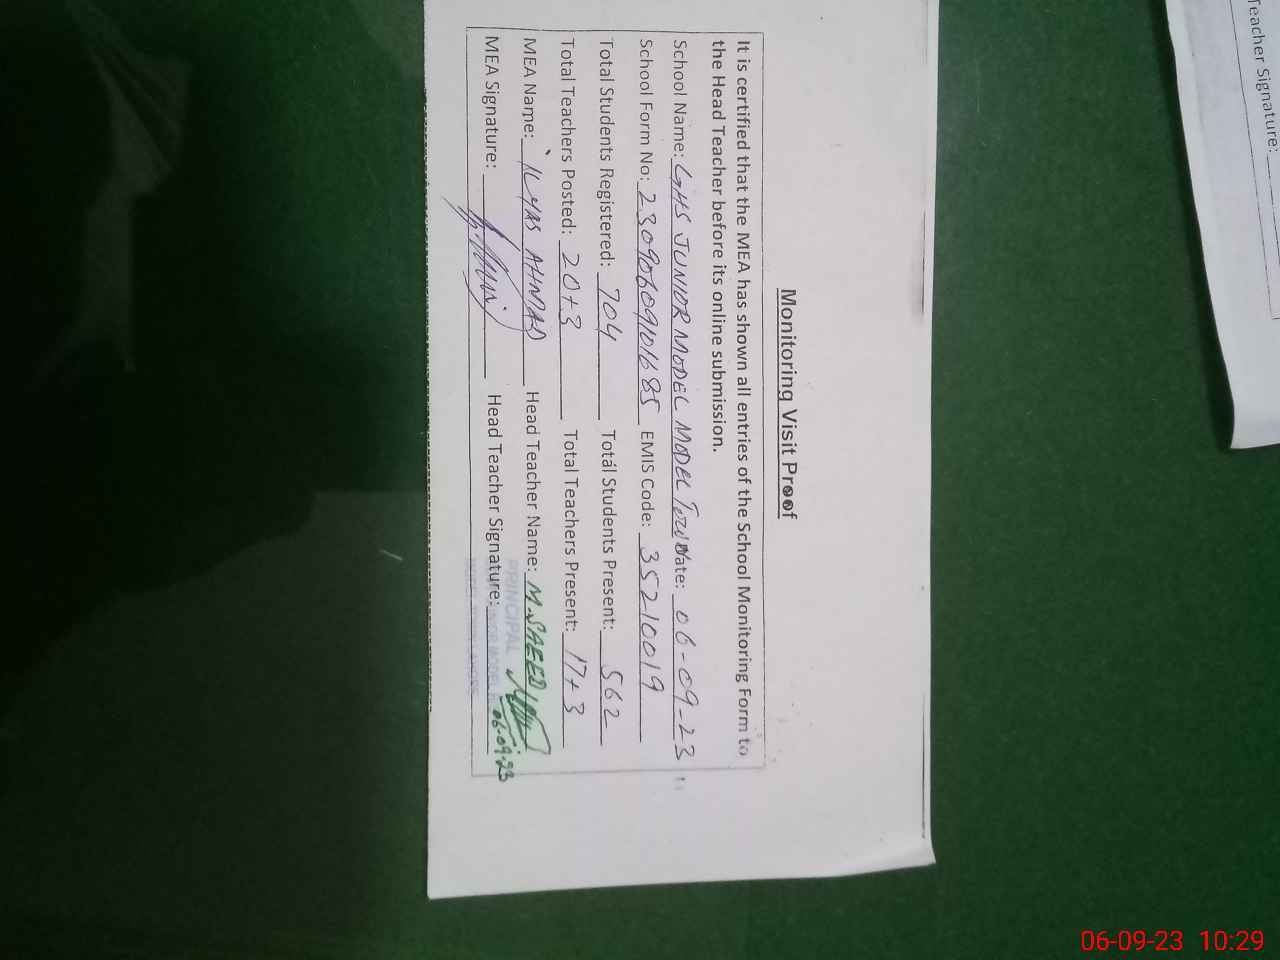 Monitoring Visit Proof
It is certified that the MEA has shown all entries of the School Monitoring Form to
the Head Teacher before its online submission.
School Name: GHS JUNIOR MODEL MODEL TOWN Date: 06-09-23
School Form No: 23090609101685 EMIS Code: 35210019
Total Students Registered: 704 Total Students Present: 562
Total Teachers Posted: 20+3 Total Teachers Present: 17+3
MEA Name: ILYAS AHMAD Head Teacher Name: M. SAEED
MEA Signature: Head Teacher Signature:
PRINCIPAL
06-09-23
Teacher Signature:
06-09-23 10:29